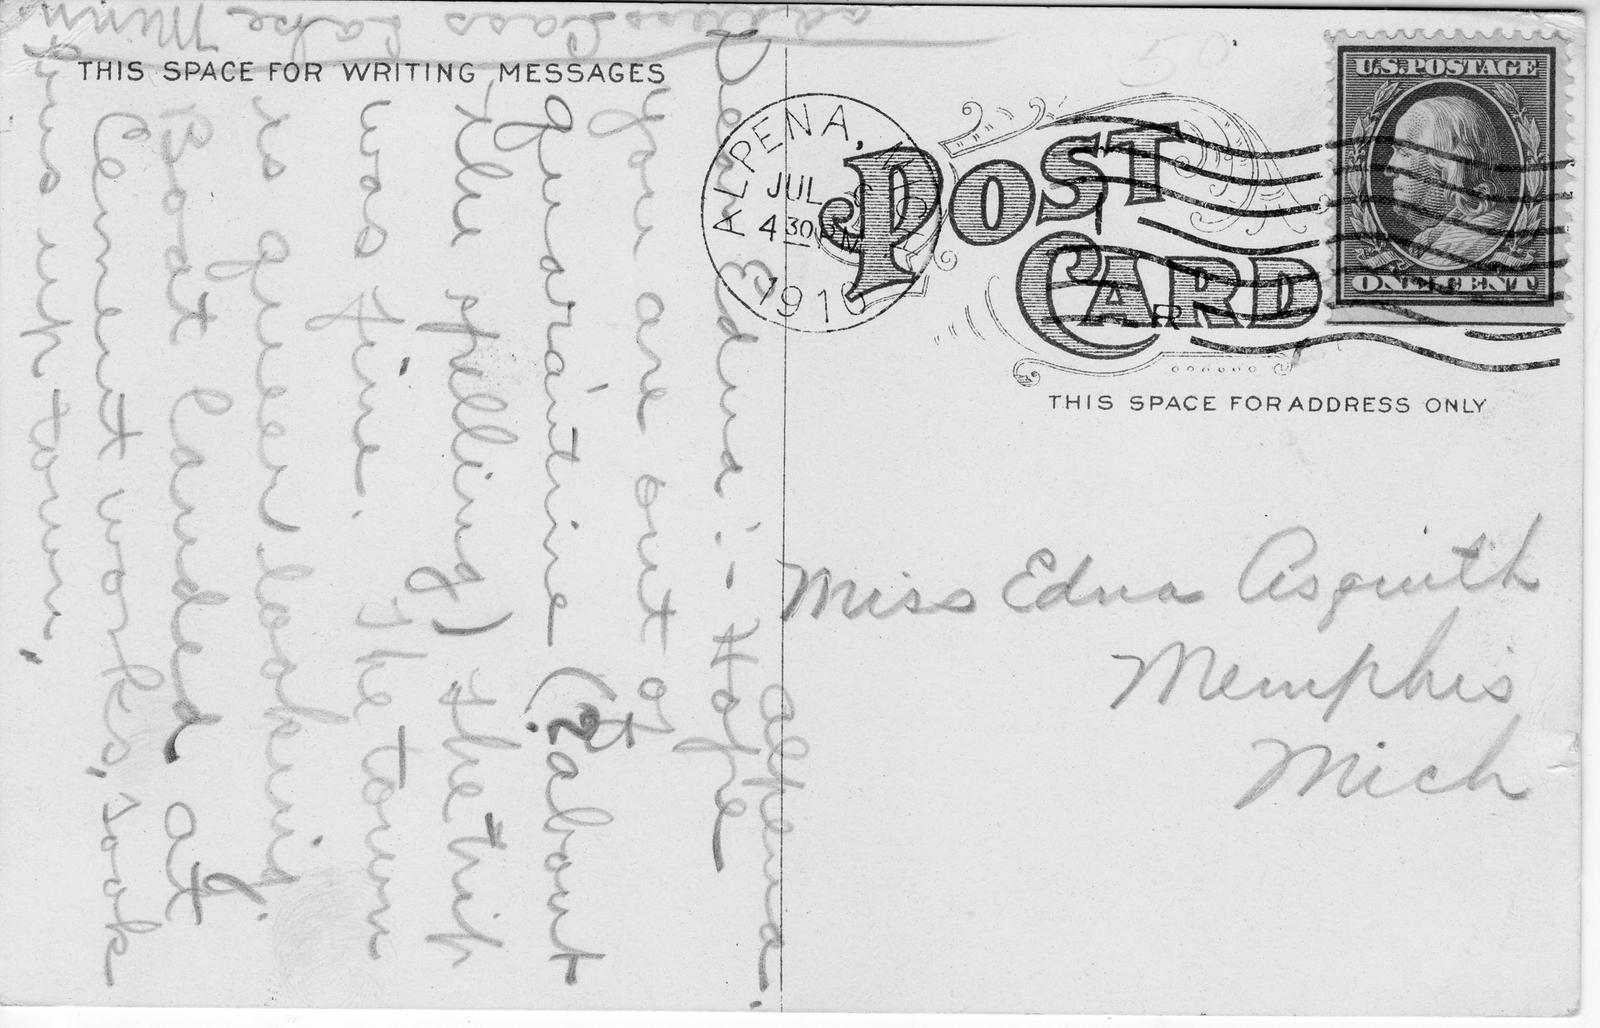 THIS SPACE FOR WRITING MESSAGES
Alpena.
Dear Edna:- Hope
you are out of
quarantine (? about
the spelling) the trip
was fine. The town
is queer looking.
Boat landed at
Cement works, took
us up town.
address Cass Lake Minn
50
ALPENA, MICH
JUL
4 30 PM
1910
POST CARD
R
U.S. POSTAGE
ONE CENT
THIS SPACE FOR ADDRESS ONLY
Miss Edna Asquith
Memphis
Mich